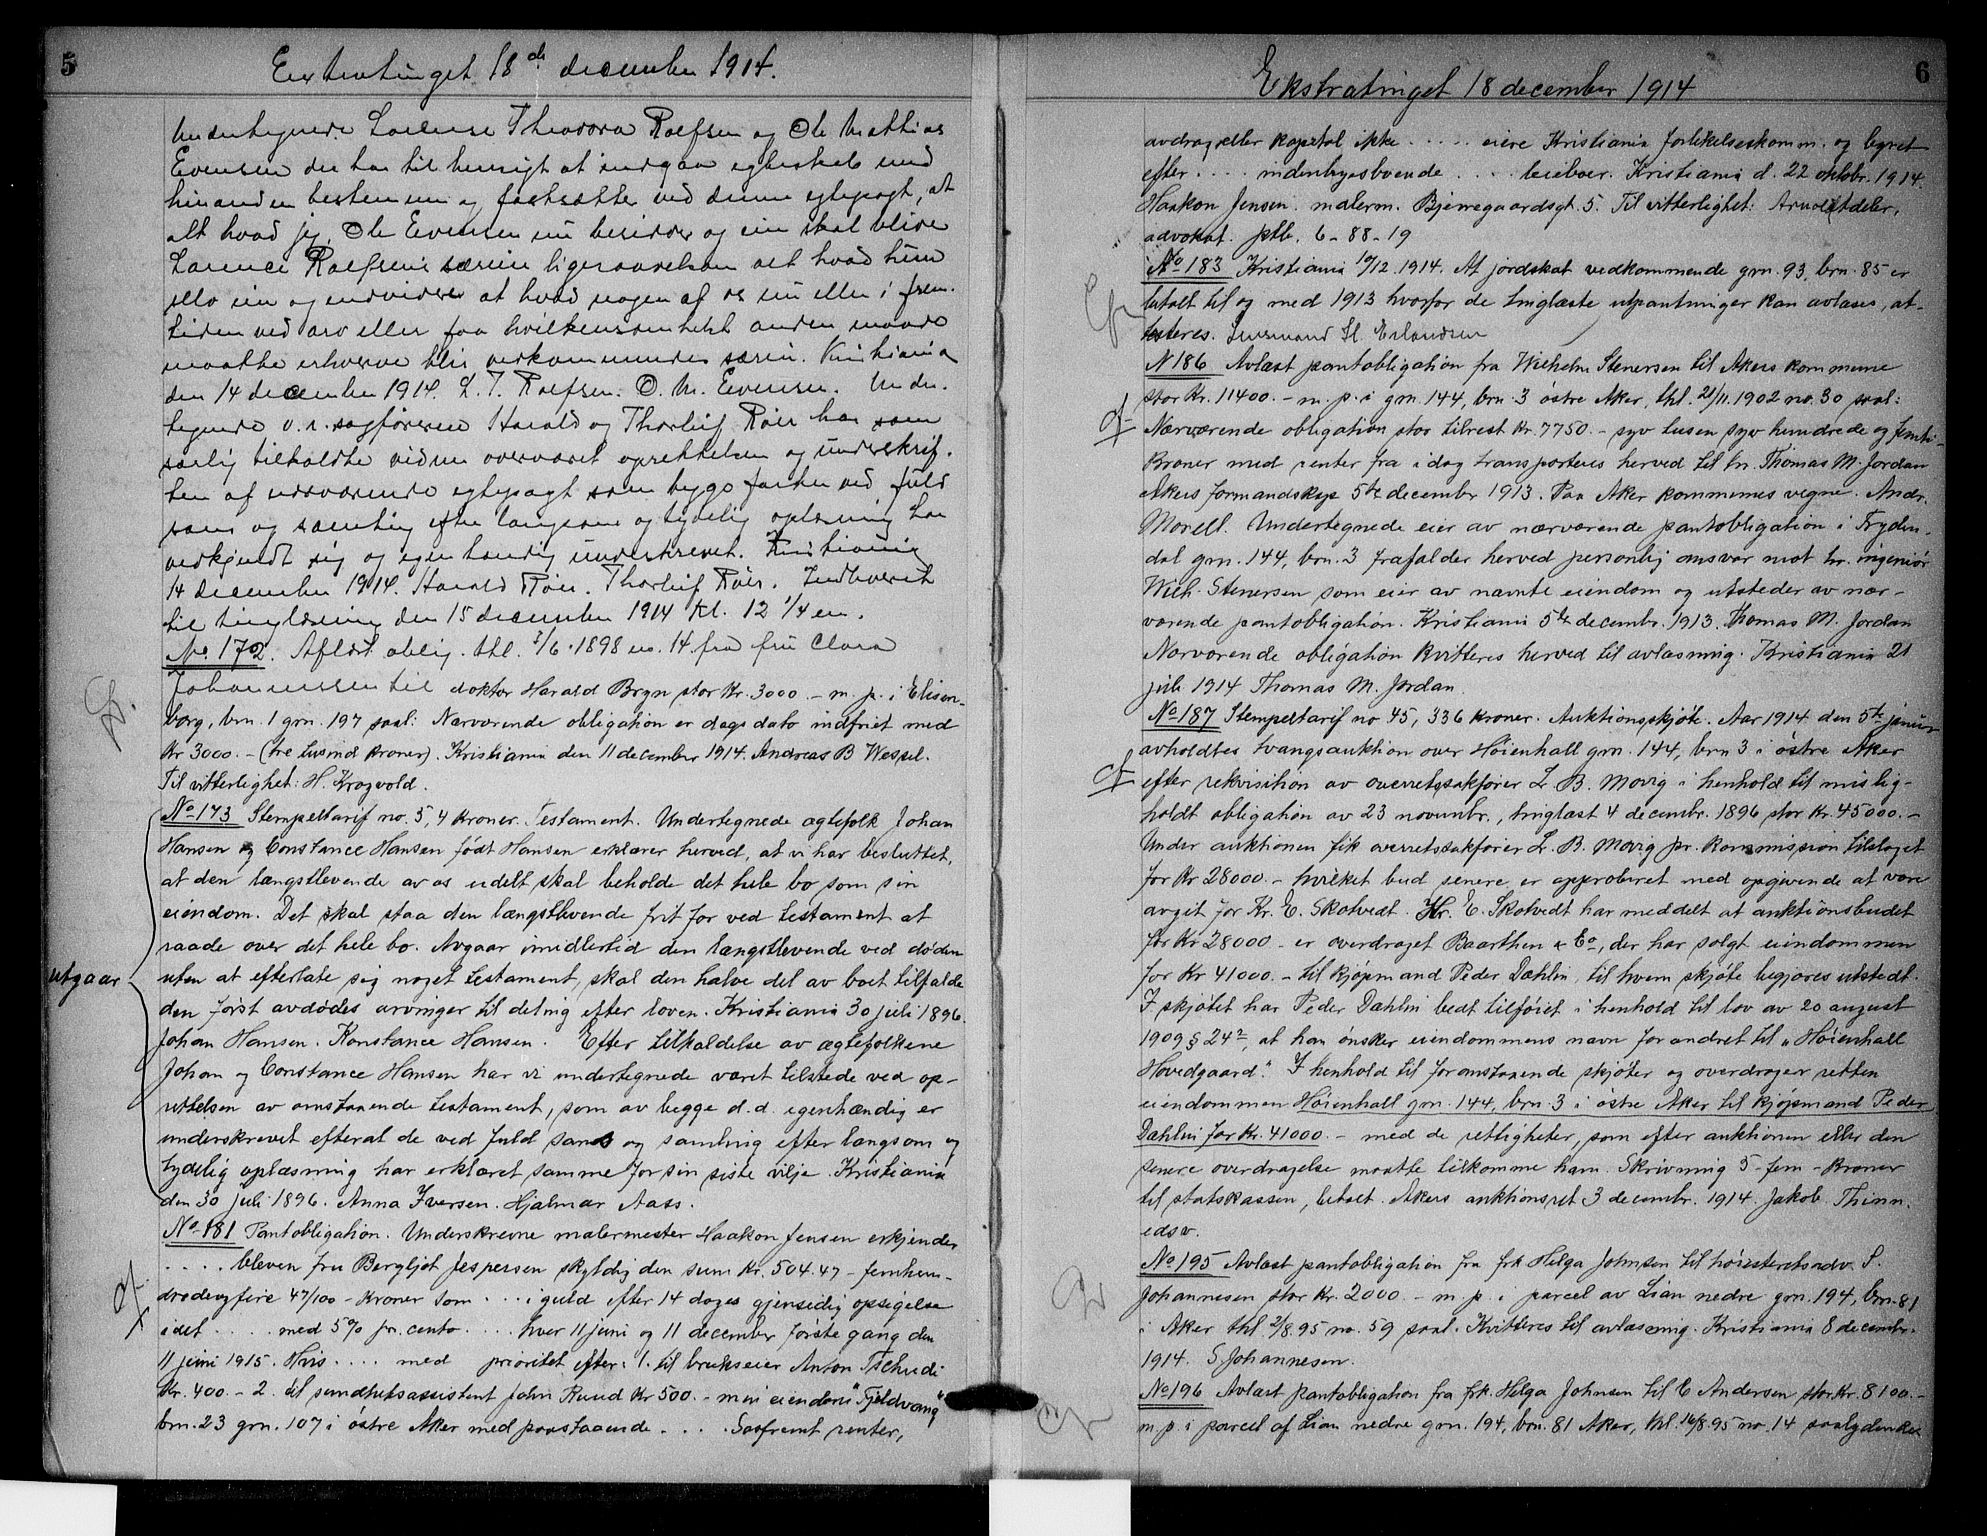 5
Extratinget 18de december 1914.
Undertegnede Laurense Theodora Roefsen og Ole Mathias
Evensen der har til hensigt at indgaa egteskab med
hinanden bestemme og fastsætter ved denne egtepagt, at
alt hvad jeg, Ole Evensen nu besidder og eier skal blive
Larence Roefsens særeie ligesaavelsom alt hvad hun
selv eier og endvidere at hvad nogen af os nu eller i frem-
tiden ved arv eller paa hvilkensomhelst anden maade
maatte erhverve blir vedkommendes særeie. Kristiania
den 14 december 1914. L. T. Roefsen. O. M. Evensen. Under-
tegnede o.r. sagførere Harald og Thorleif Röer har som
særlig tilkaldte vidner overværet oprettelsen og underskrif-
ten af nærværende egtepagt som begge parter ved fuld
sans og samling efter langsom og tydelig oplæsning har
vedkjendt sig og egenhændig underskrevet. Kristiania
14 december 1914. Harald Röer. Thorleif Röer. Indleveret
til tinglæsning den 15 december 1914 kl. 12 1/4 em.
No 172. Aflæst oblig. thl. 7/6.1898 no. 14 fra fru Clara
Johannessen til doktor Harald Bryn stor Kr. 3000.- m. p. i Elisen-
borg, brn. 1 grn. 197 saal: Nærværende obligation er dags dato indfriet med
Kr 3000.- (tre tusind kroner). Kristiania den 11 december 1914. Andreas B Wessel.
Til vitterlighet: H. Krogvold.
No 173 Stempeltarif no. 5, 4 kroner. Testament. Undertegnede ægtefolk Johan
Hansen og Constance Hansen født Hansen erklærer herved, at vi har besluttet,
at den længstlevende av os udelt skal beholde det hele bo som sin
eiendom. Det skal staa den længstlevende frit for ved testament at
raade over det hele bo. Avgaar imidlertid den længstlevende ved døden
utgaar
uten at efterlate sig noget testament, skal den halve del av boet tilfalde
den først avdødes arvinger til deling efter loven. Kristiania 30 juli 1896.
Johan Hansen. Konstance Hansen. Efter tilkaldelse av ægtefolkene
Johan og Constance Hansen har vi undertegnede været tilstede ved op-
rettelsen av omstaaende testament, som av begge d.d. egenhændig er
underskrevet efterat de ved fuld sans og samling efter langsom og
tydelig oplæsning har erklæret samme for sin siste vilje. Kristiania
den 30 juli 1896. Anna Iversen. Hjalmar Aass.
No 181 Pantobligation. Underskrevne malermester Haakon Jensen erkjender
.... bleven fru Bergljot Jespersen skyldig den sum Kr. 504.47 - femhun-
dredeogfire 47/100 - kroner som ... i guld efter 14 dages gjensidig opsigelse
idet .... med 5% pr. cento .... hver 11 juni og 11 december første gang den
11 juni 1915. Hvis .... med prioritet efter: 1. til brukseier Anton Tschudi
Kr. 400.- 2. til sundhetsassistent John Ruud Kr 500.- min eiendom "Fjeldvang"
brn. 23 grn. 107 i østre Aker med paastaaende .... Saafremt renter,
6
Ekstratinget 18 december 1914
avdrag eller kapital ikke ..... eiere Kristiania forlikelseskomm. og byret
efter .... indenbysboende .... leieboer. Kristiania d. 22 oktobr. 1914.
Haakon Jensen. malerm. Bjerregaardsgt. 5. Til vitterlighet: Arnoldtdeler,
advokat. ptb. 6-88-19
No 183 Kristiania 10/12.1914. At jordskat vedkommende grn. 93, brn. 85 er
betalt til og med 1913 hvorfor de tinglæste utpantninger kan avlæses, at-
testeres. Lensmand Sl. Erlandsen
N 186 Avlæst pantobligation fra Wilhelm Stenersen til Akers kommune
stor Kr. 11400.- m. p. i grn. 144, brn. 3 østre Aker, thl. 21/11.1902 no. 30 saal:
Nærværende obligation stor tilrest Kr. 7750.- syv tusen syv hundrede og femti-
Kroner med renter fra idag transporteres herved til hr. Thomas M. Jordan
Akers formandskap 5te december 1913. Paa Aker kommunes vegne. Andr.
Morell. Undertegnede eier av nærværende pantobligation i Fryden-
dal grn. 144, brn. 3 frafalder herved personlig ansvar mot hr. ingeniør
Wilh. Stenersen som eier av nævnte eiendom og utsteder av nær-
værende pantobligation. Kristiania 5te decembr. 1913. Thomas M. Jordan
Nærværende obligation kvitteres herved til avlæsning. Kristiania 21
juli 1914 Thomas M. Jordan.
No 187 Stempeltarif no 45, 336 kroner. Auktionsskjøte. Aar 1914 den 5te januar
avholdtes tvangsauktion over Høienhall grn. 144, brn 3 i østre Aker
efter rekvisition av overretssakfører L. B. Movig i henhold til mislig-
holdt obligation av 23 novembr., tinglæst 4 decembr. 1896, stor Kr. 45000.-
Under auktionen fik overretssakfører L. B. Movig pr. kommission tilslaget
for Kr 28000.- hvilket bud senere er approberet med opgivende at være
avgit for Kr. E. Skotvedt. Hr. E. Skotvedt har meddelt at auktionsbudet
for Kr 28000.- er overdraget Baarthen & Co, der har solgt eiendommen
for Kr 41000.- til kjøpmand Peder Dæhlin, til hvem skjøte begjæres utstedt.
I skjøtet har Peder Dæhlin bedt tilføiet i henhold til lov av 20 august
1909 § 24², at han ønsker eiendommens navn forandret til "Høienhall
Hovedgaard". I henhold til foranstaaende skjøter og overdrager retten
eiendommen Høienhall grn. 144, brn. 3 i østre Aker til kjøpmand Peder
Dæhlin for Kr. 41000.- med de rettigheter, som efter auktionen eller den
senere overdragelse maatte tilkomme ham. Skrivning 5-fem-kroner
til statskassen, betalt. Akers auktionsret 3 decembr. 1914. Jakob Thinn.
edsv.
No 195 Avlæst pantobligation fra frk Helga Johnsen til høiesteretsadv. S.
Johannesen stor Kr. 2000.- m. p. i parcel av Lian nedre grn. 194, brn. 81
i Aker thl. 2/8.95 no. 59 saal. Kvitteres til avlæsning. Kristiania 8 decembr.
1914. S. Johannesen.
No 196 Avlæst pantobligation fra frk. Helga Johnsen til C Andersen stor Kr. 8100.-
m. p. i parcel af Lian nedre grn. 194, brn. 81 Aker, thl. 16/8.95 no. 14 saalydende: